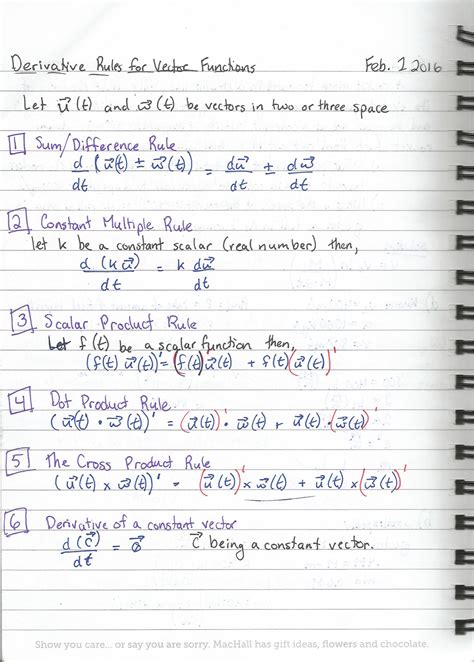 Derivative Rules for Vector Functions Feb. 1 2016
Let u⃗(t) and w⃗(t) be vectors in two or three space
1 Sum/Difference Rule
d(u⃗(t) ± w⃗(t))/dt = du⃗/dt ± dw⃗/dt
2 Constant Multiple Rule
let k be a constant scalar (real number) then,
d(ku⃗)/dt = k du⃗/dt
3 Scalar Product Rule
Let f(t) be a scalar function then,
(f(t) u⃗(t))' = (f(t))' u⃗(t) + f(t)(u⃗(t))'
4 Dot Product Rule
(u⃗(t) · w⃗(t))' = (u⃗(t))' · w⃗(t) + u⃗(t) · (w⃗(t))'
5 The Cross Product Rule
(u⃗(t) × w⃗(t))' = (u⃗(t))' × w⃗(t) + u⃗(t) × (w⃗(t))'
6 Derivative of a constant vector
d(c⃗)/dt = 0⃗ c⃗ being a constant vector.
Show you care... or say you are sorry. MacHall has gift ideas, flowers and chocolate.